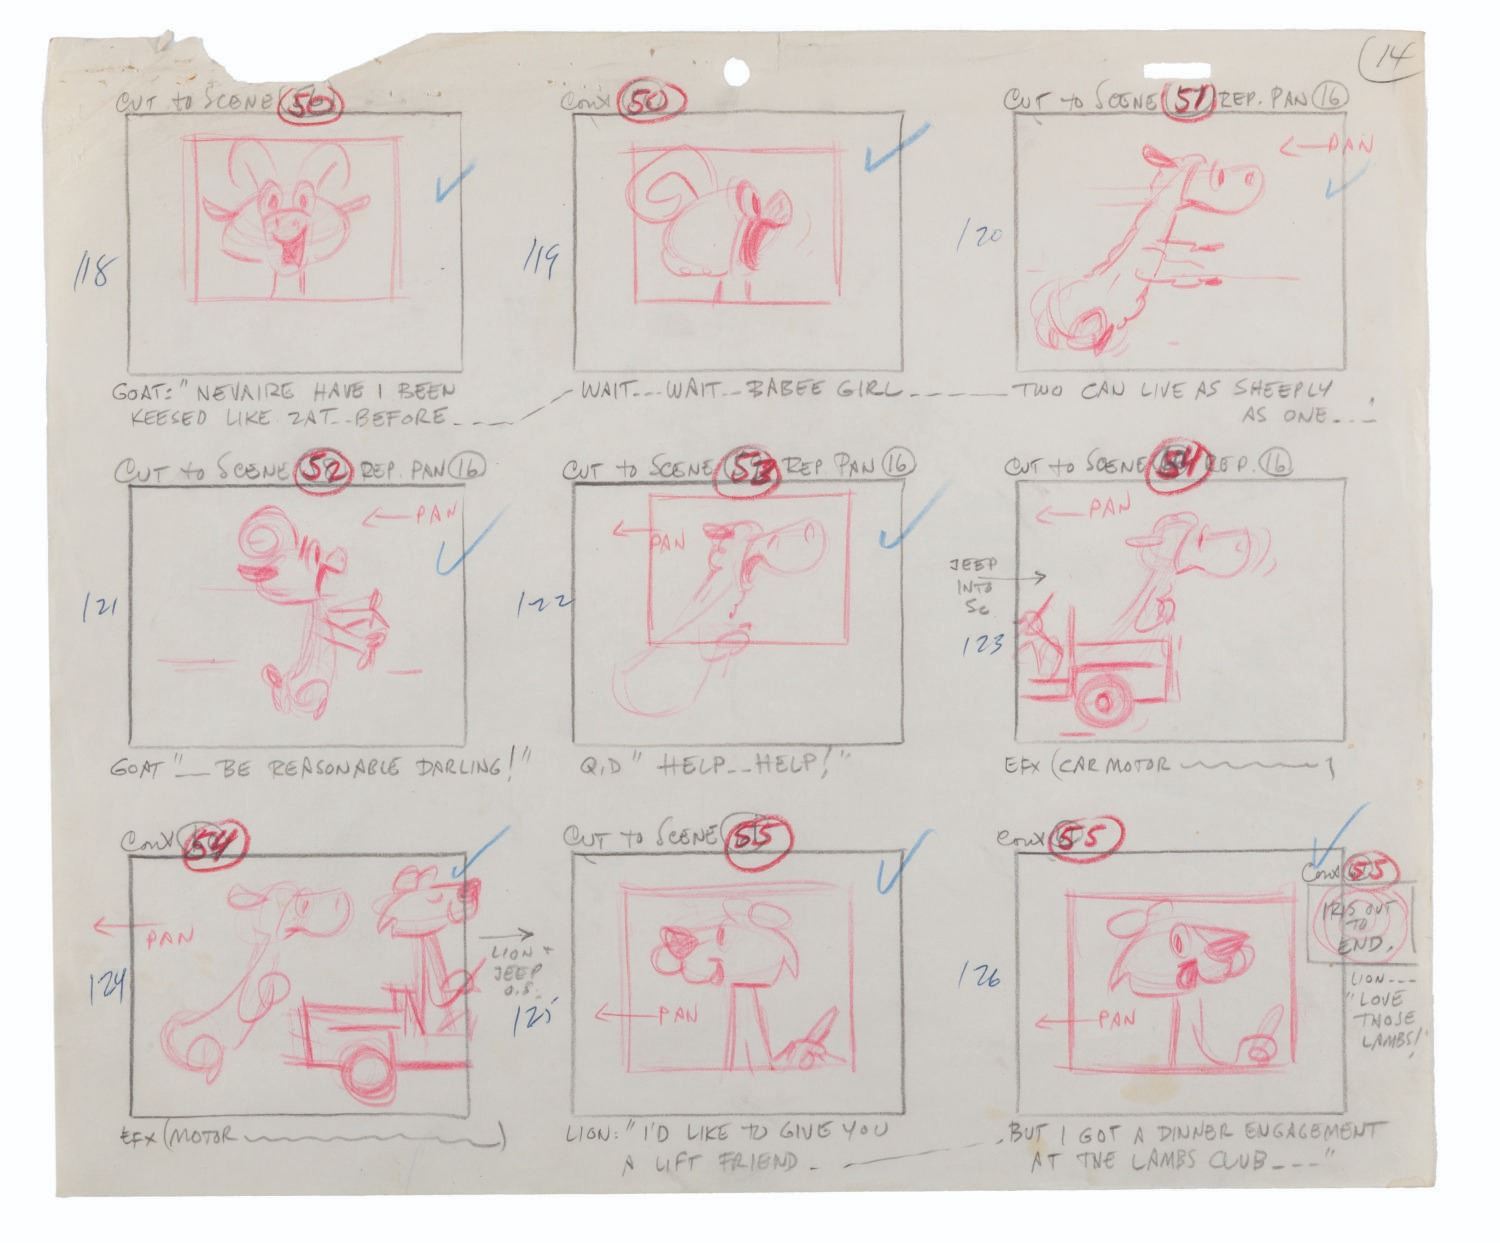 14
CUT TO SCENE 50
CONT 50
CUT TO SCENE 51 REP. PAN 16
118
119
120
← PAN
GOAT: "NEVAIRE HAVE I BEEN
KEESED LIKE ZAT--BEFORE----
WAIT---WAIT--BABEE GIRL-----
TWO CAN LIVE AS SHEEPLY
AS ONE---!
CUT TO SCENE 52 REP. PAN 16
CUT TO SCENE 53 REP. PAN 16
CUT TO SCENE 54 REP. 16
121
← PAN
122
← PAN
JEEP
INTO
SC.
123
← PAN
GOAT "__ BE REASONABLE DARLING!"
Q.D " HELP--HELP!"
EFX (CAR MOTOR
CONT 54
CUT TO SCENE 55
CONT 55
CONT 55
124
← PAN
LION +
JEEP
O.S.
125
← PAN
126
← PAN
IRIS OUT
TO
END.
LION---
"LOVE
THOSE
LAMBS!
EFX (MOTOR )
LION: "I'D LIKE TO GIVE YOU
A LIFT FRIEND-
BUT I GOT A DINNER ENGAGEMENT
AT THE LAMBS CLUB----"